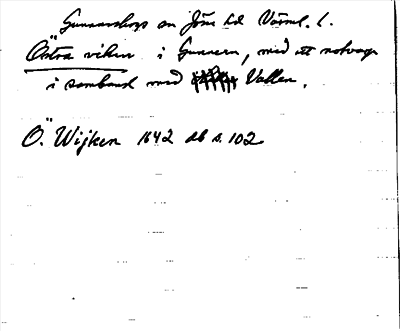 Gunnarskogs sn Jösse hd Värml. l.
Östra viken i Gunnern, med ett notvarp
i samband med Vallen.
Ö. Wijken 1642 ab s. 102